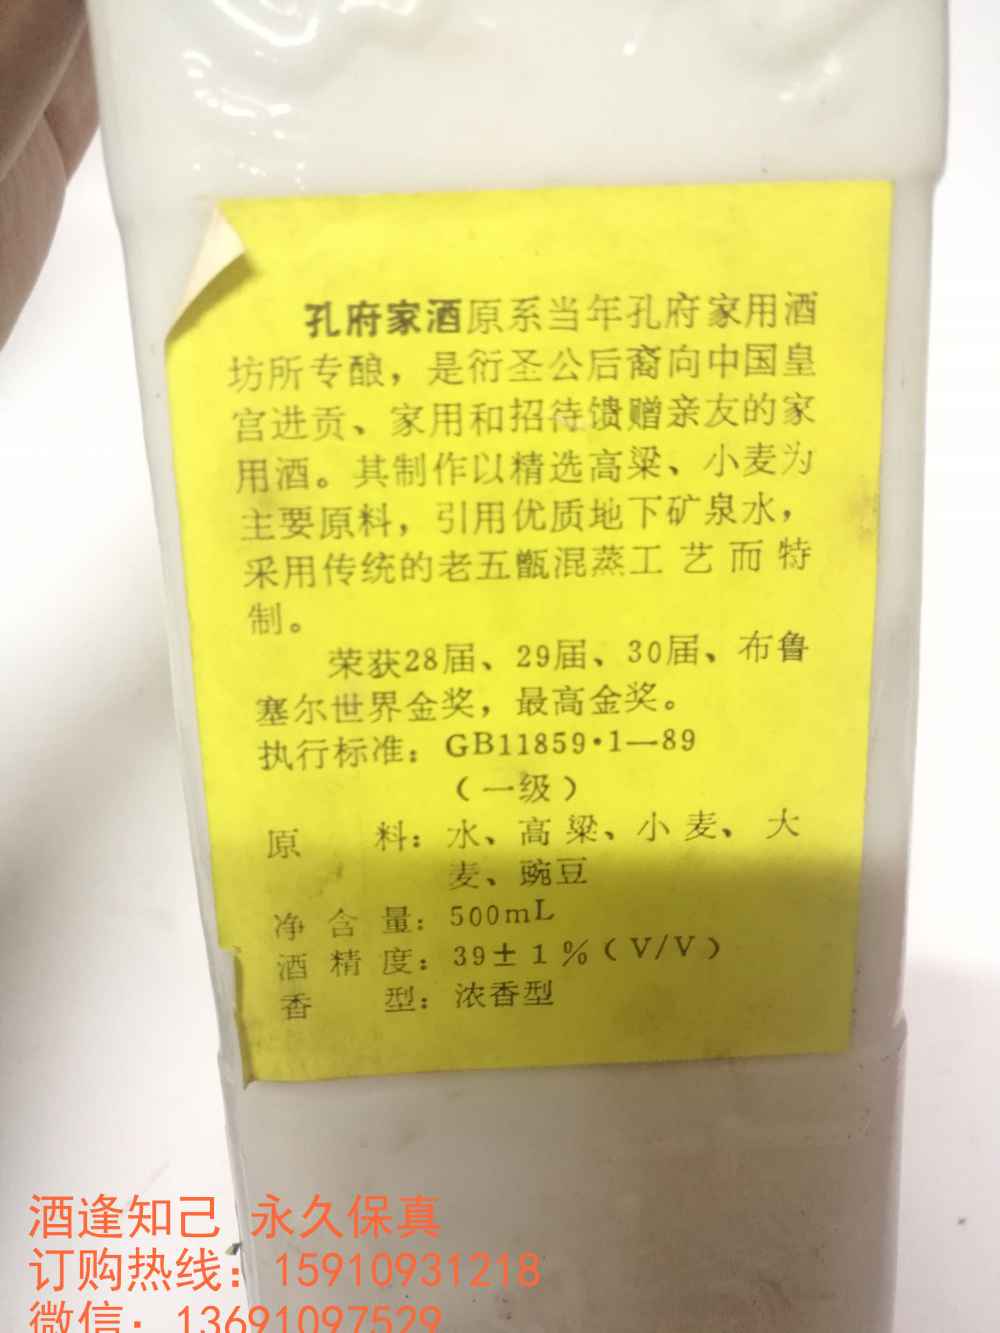 孔府家酒原系当年孔府家用酒
坊所专酿，是衍圣公后裔向中国皇
宫进贡、家用和招待馈赠亲友的家
用酒。其制作以精选高梁、小麦为
主要原料，引用优质地下矿泉水，
采用传统的老五甑混蒸工艺而特
制。
荣获28届、29届、30届、布鲁
塞尔世界金奖，最高金奖。
执行标准：GB11859·1—89
（一级）
原 料：水、高粱、小麦、大
麦、豌豆
净含量：500mL
酒精度：39±1％（V/V）
香 型：浓香型
酒逢知己 永久保真
订购热线：15910931218
微信：13691097529